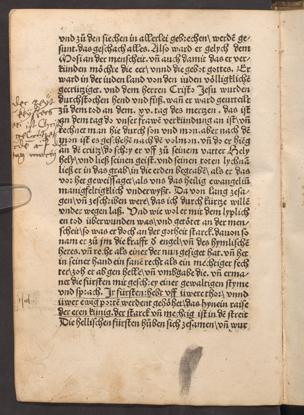 vnd zů den siechen in allerlei gebrechen/ werdē ge-
sunt. das geschach alles. Also ward er gelych dem
Mosi an der menscheit. vn̄ auch damit das er ver-
künden möchte die eer/ vnnd die gebot gottes. Er
ward in der iuden land von den iuden völligkliche
gecrütziget. vnd dem herren Cristo Jesu wurden
durchstochen hend vnd füß. wan er ward geurteilt
zů dem tod an dem. xv. tag des mertzen. das ist
an dem tag do vnser frawē verkündung an ist. vn̄
rechnet man hie durch son vnd mon. aber nach dē
mon ist es geschehē nach dē volmon. vn̄ do er hieng
an de crütz/ do schry er vff zů seinem vatter Hely
hely/ vnd ließ seinen geist. vnd seinen toten lychnā
ließ er in das grab/ in die erden begrabē/ als er das
vor her geweissaget/ als vns das heilig ewangeliū
manigfeltigklich vnderwyset. Da von lang zesa-
gen/ vn̄ zeschriben were/ das ich durch kürtze wille
vnder wegen laß. Vnd wie wol er mit dem lyplich
en tod überwunden was/ vnd getötet an der men-
scheit/ so was er doch an der gotheit starck. dauon so
nam er zů jm die krafft der engel/ vn̄ des hymlischē
heres. vn̄
in seiner hand ein fanē recht als ein mechtiger fech
ter/ zoch er ab gen helle/ vn̄ vmbgabe die. vn̄ erma-
net die fürsten mit geschrey einer gewaltigen styme
vnd sprach. Ir fürsten: hebt vff üwere thor/ vnnd
üwer ewig porte werdent gehöhet/ das hynein raise
der eren künig. der starck vn̄ mechtig ist in dē streit
Die hellischen fürsten hůben sich zesamen/ vn̄ wur